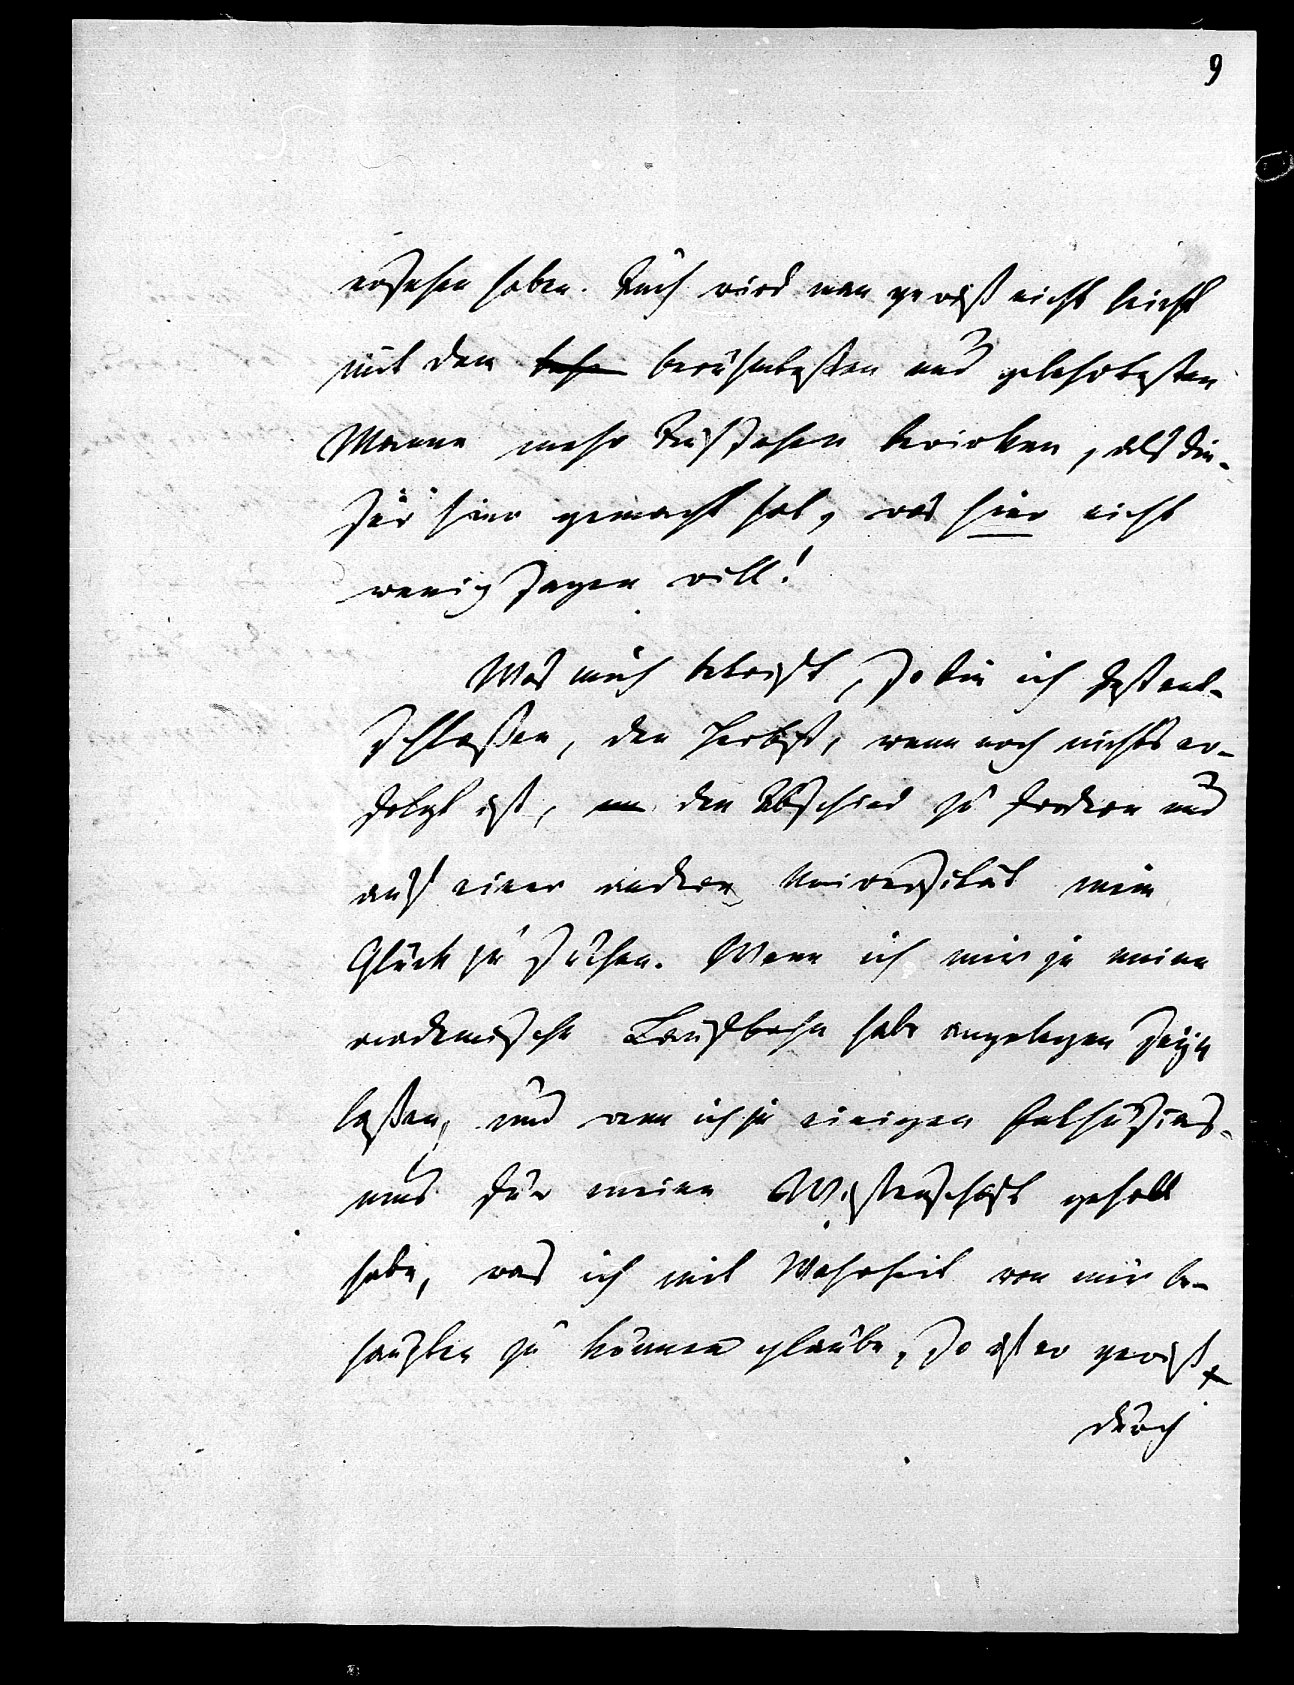 9
ersehen haben. Auch wird man gewiß nicht leicht
mit dem berühmtesten und gelehrtesten
Manne mehr Aufsehen bewirken, als die-
ser hier gemacht hat, was hier nicht
wenig sagen will!
Was mich betrifft, so bin ich festent-
schlossen, den Herbst, wenn noch nichts er-
folgt ist, den Abschied zu fordern und
auf einer andern Universität mein
Glück zu suchen. Wenn ich mir je meine
academische Laufbahn habe angelegen seÿn
laßen, und wenn ich je einigen Enthusias-
mus für meine Wissenschaft gehabt
habe, was ich mit Wahrheit von mir be-
haupten zu können glaube, so ist er gewiß
durch